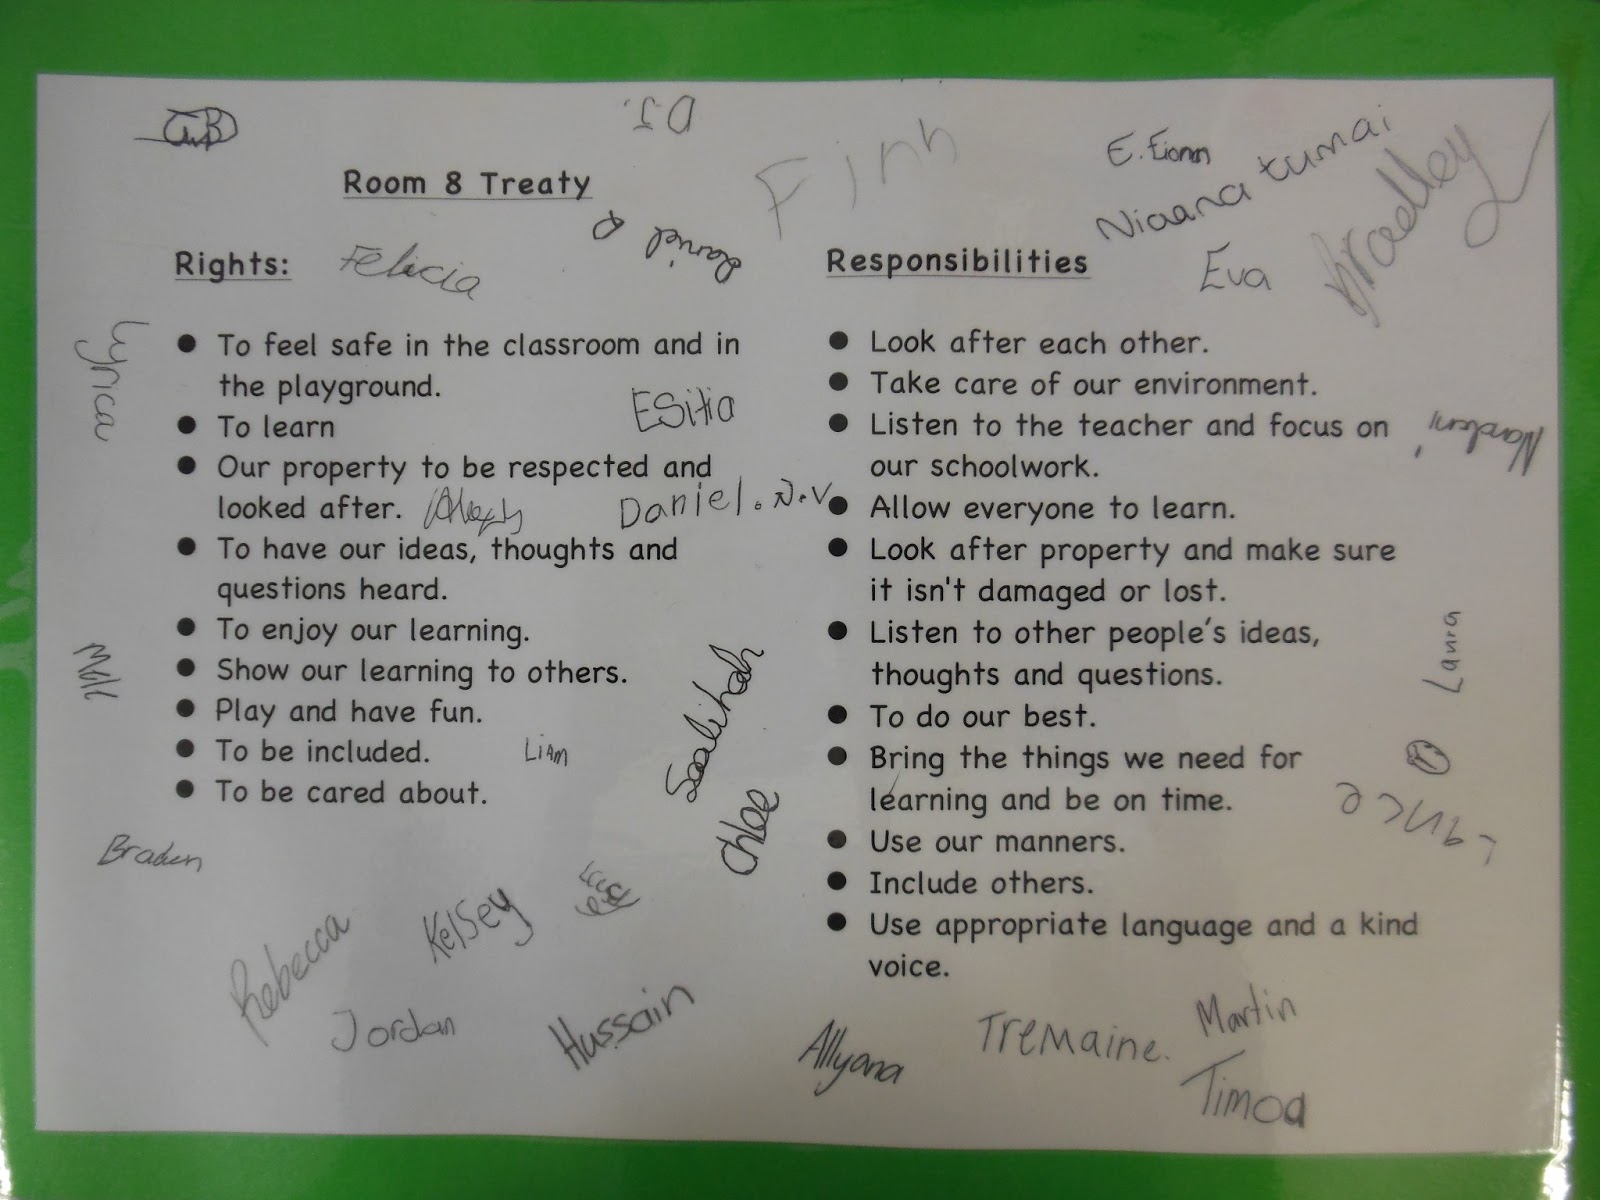 D.J.
Finn
Niaana tumai
Bradley
Room 8 Treaty
Daniel R
Rights:
Felicia
Responsibilities
Eva
Lyrica
● To feel safe in the classroom and in
the playground.
● To learn
ESitia
● Our property to be respected and
looked after.
Daniel.N.V
● To have our ideas, thoughts and
questions heard.
● To enjoy our learning.
● Show our learning to others.
● Play and have fun.
● To be included.
Liam
● To be cared about.
Saalihah
Chloe
● Look after each other.
● Take care of our environment.
● Listen to the teacher and focus on
our schoolwork.
● Allow everyone to learn.
● Look after property and make sure
it isn't damaged or lost.
● Listen to other people's ideas,
thoughts and questions.
Laura
● To do our best.
● Bring the things we need for
learning and be on time.
● Use our manners.
● Include others.
● Use appropriate language and a kind
voice.
Rebecca
Kelsey
Jordan
Hussain
Allyana
TReMaine.
Martin
Timoa